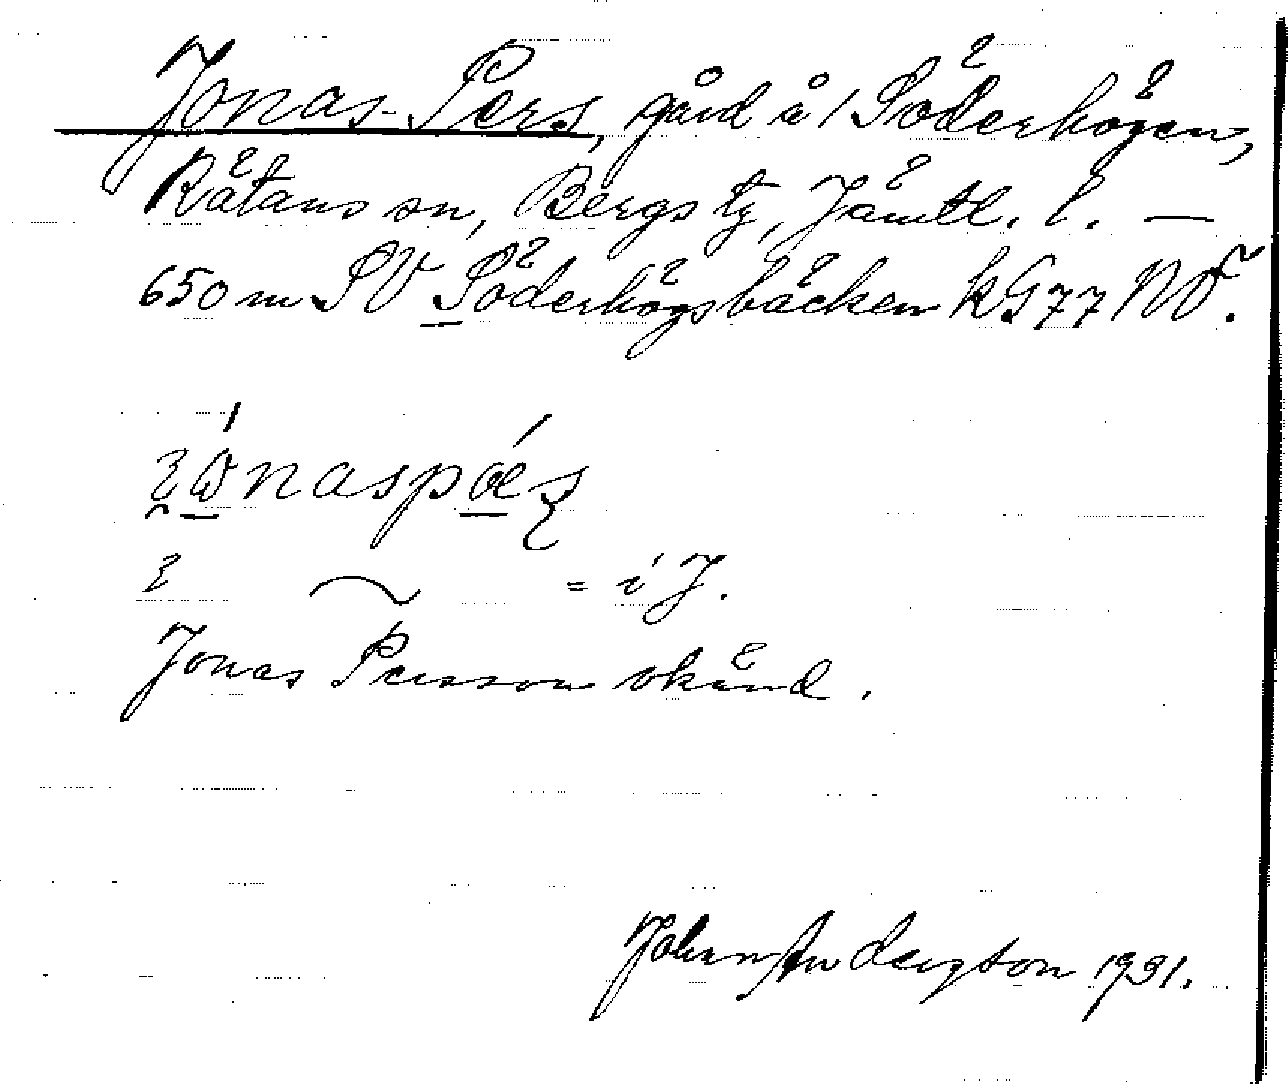 Jonas-Pers, gård å / Söderhögen,
Rätans sn, Bergs tg, Jämtl. l. —
650 m SV Söderhögsbäcken kG77 NV.
= i J.
Jonas Persson okänd.
Johan Andersson 1931.